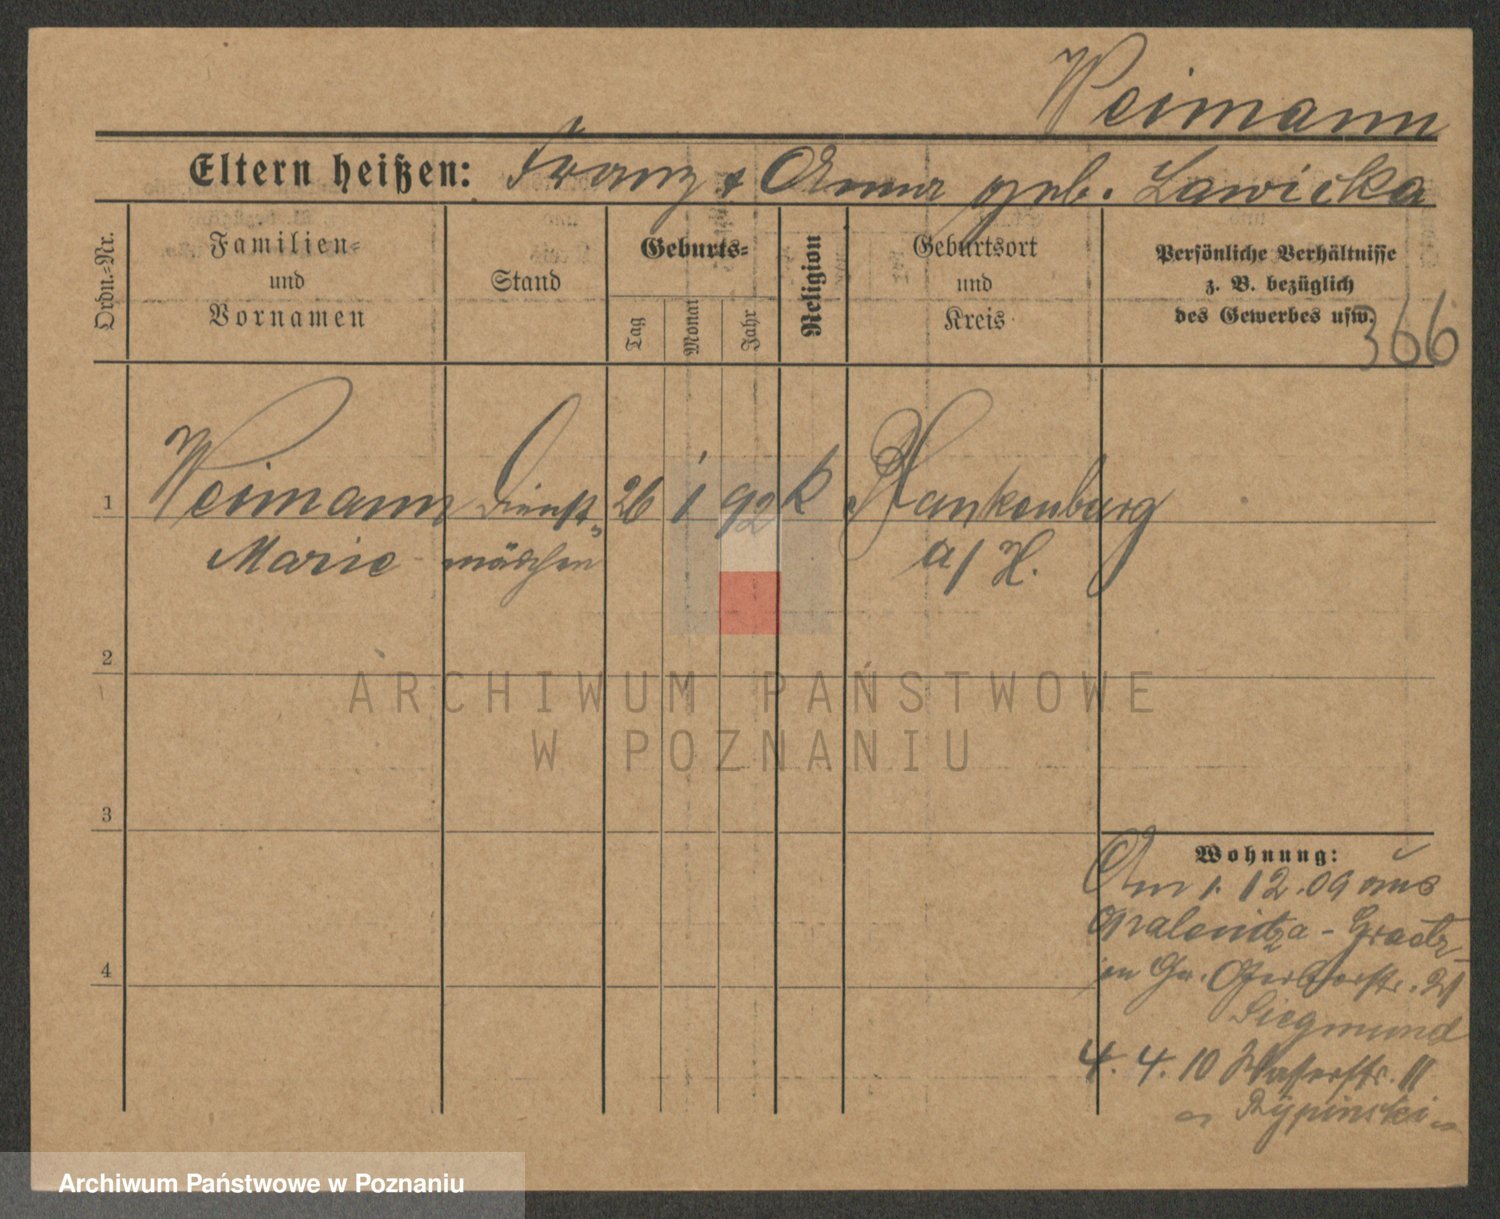 Weimann
Eltern heißen: Franz & Anna geb. Lawicka
Ordn.-Nr.
Familien-
und
Vornamen
Stand
Geburts-
Tag
Monat
Jahr
Religion
Geburtsort
und
Kreis
Persönliche Verhältnisse
z. B. bezüglich
des Gewerbes usw.
366
1 Weimann Dienst- 26 1 92 k Blankenburg
Marie mädchen a/H.
2
3
4
ARCHIWUM PAŃSTWOWE
W POZNANIU
Wohnung:
Am 1.12.09 aus
Opalenitza - Graetz
in Gerberstr. 21
Siegmund
4. 4. 10 Wasserstr. 11
Rypinski
Archiwum Państwowe w Poznaniu